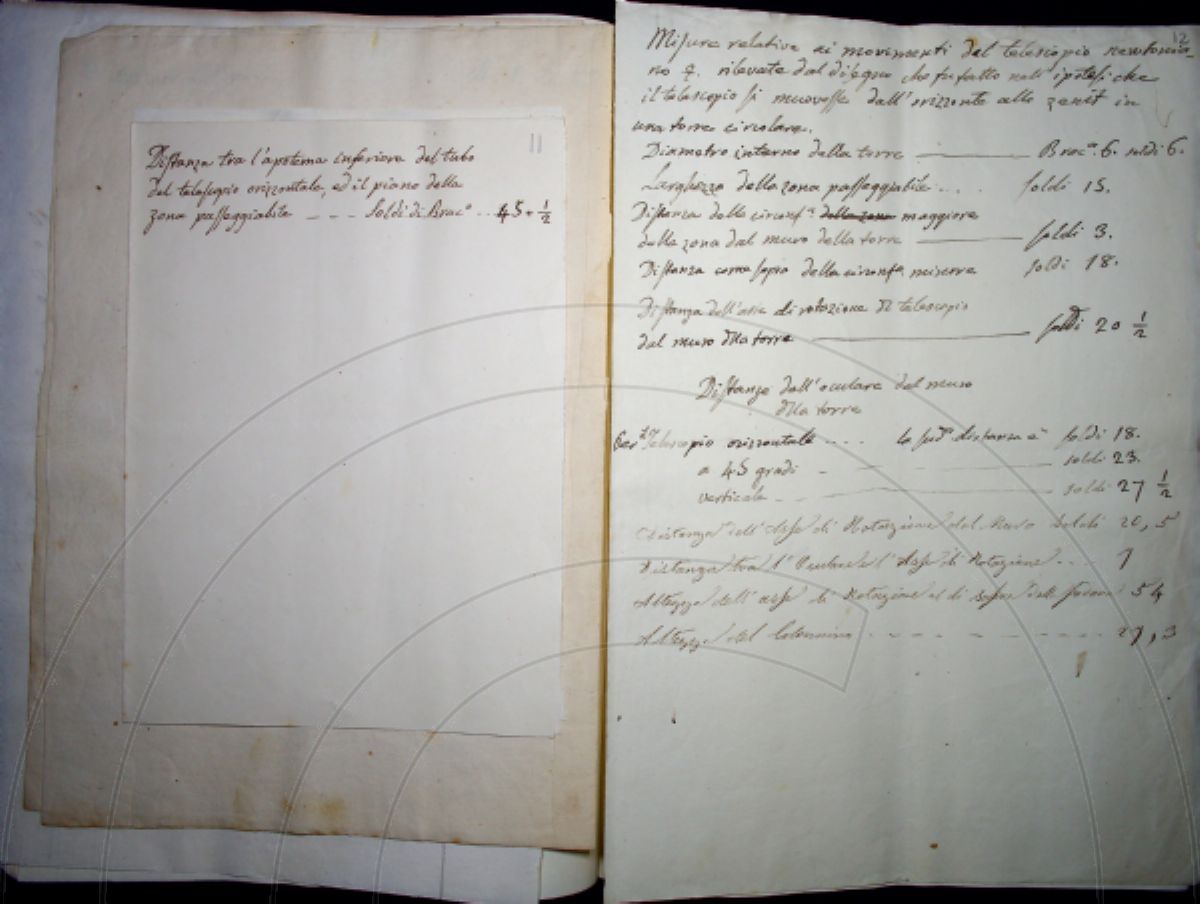 11
Distanza tra l'apotema inferiore del tubo
del telescopio orizzontale, ed il piano della
zona passeggiabile - - - Soldi di Brac.ª .. 45 + 1/2
12
Misure relative ai movimenti del telescopio newtonia-
no rilevate dal disegno che fu fatto nell'ipotesi che
il telescopio si muovesse dall'orizzonte allo zenit in
una torre circolare.
Diametro interno della torre ——— Brac.ª 6. soldi 6.
Larghezza della zona passeggiabile . . . soldi 15.
Distanza della circonf.ª della zona maggiore
della zona dal muro della torre ——— soldi 3.
Distanza come sopra della circonf.ª minore soldi 18.
Distanza dell'asse di rotazione del telescopio
dal muro della torre ——— soldi 20 1/2
Distanze dell'oculare dal muro
della torre
Telescopio orizzontale .... la sud.ª distanza è soldi 18.
a 45 gradi - — — soldi 23.
verticale - - — soldi 27 1/2
Distanza dell'Asse di Rotazione dal Muro Soldi 20,5
Distanza tra l'Oculare e l'Asse di Rotazione . . . 7
Altezza dell'asse di Rotazione al di sopra della 54
Altezza del Colonnino - - - - - - 27,3